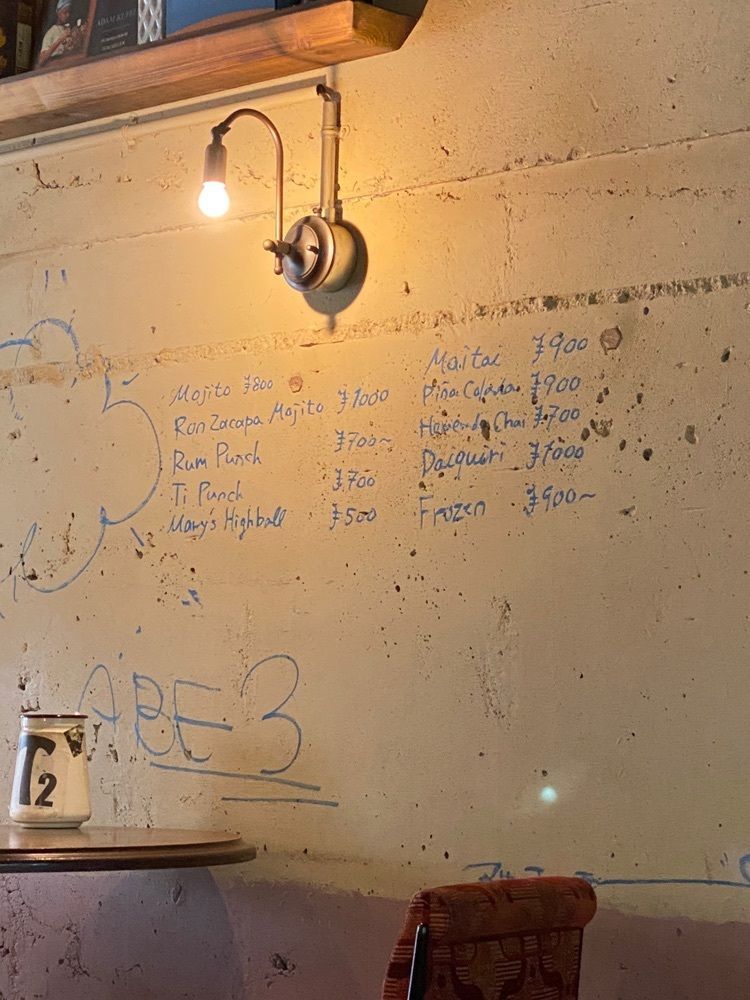 ADAM KUPER
Mojito ¥800
Ron Zacapa Mojito ¥1000
Rum Punch ¥700~
Ti Punch ¥700
Mary's Highball ¥500
Maitai ¥900
Piña Colada ¥900
Chai ¥700
Daiquiri ¥1000
Frozen ¥900~
ABE 3
T2